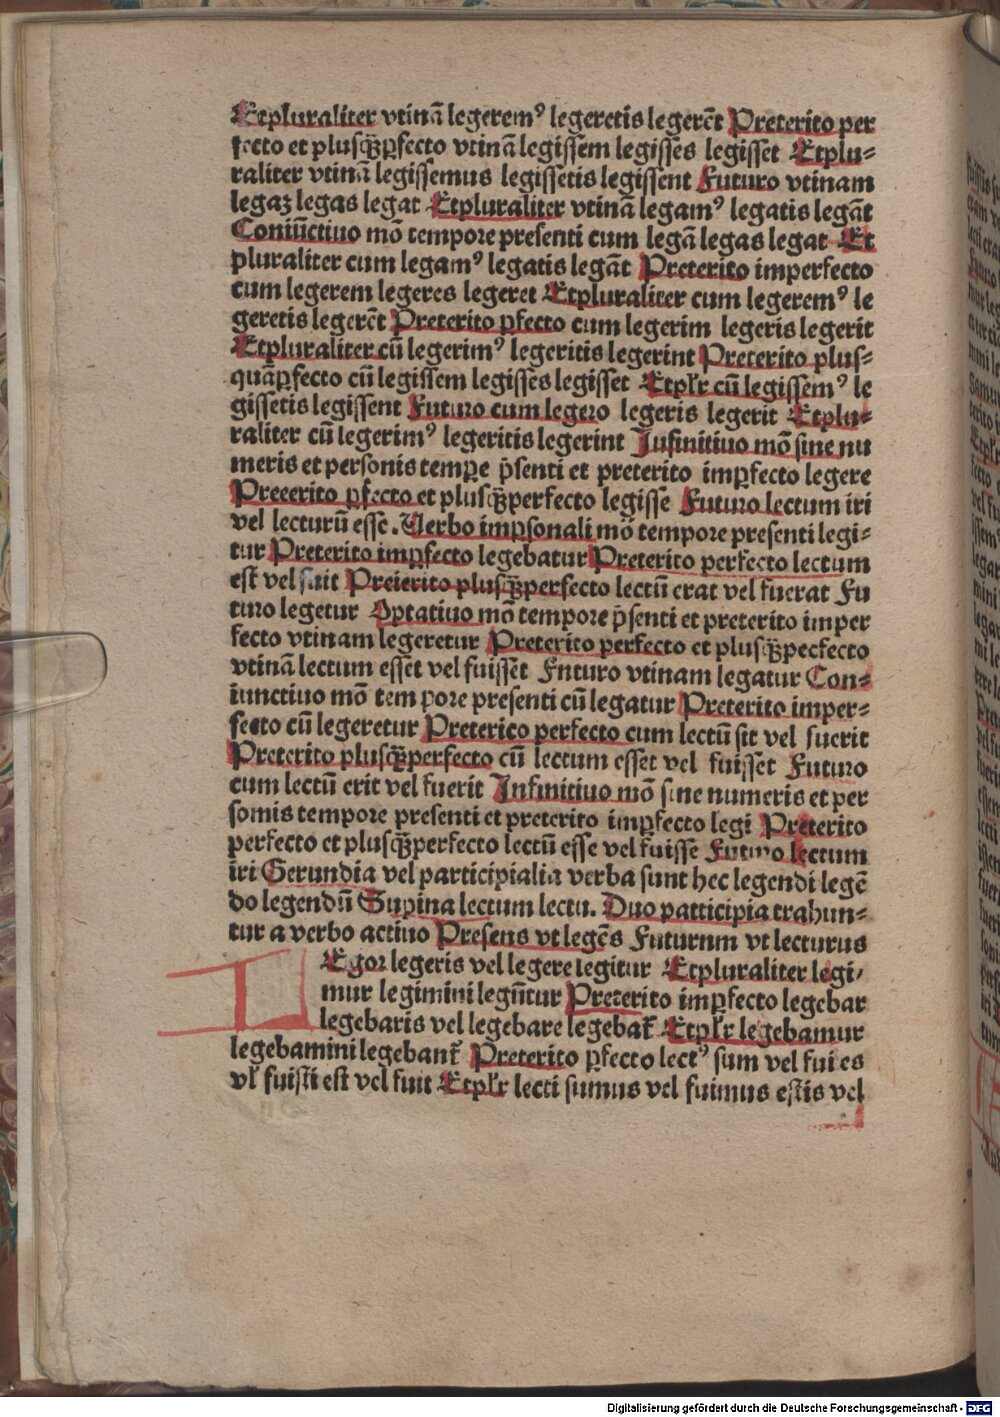 Etpluraliter vtinā legerem⁹ legeretis legerēt Preterito per
fecto et plusq̄ꝑfecto vtinā legissem legisses legisset Etplu⸗
raliter vtinā legissemus legissetis legissent Futuro vtinam
legaʒ legas legat Etpluraliter vtinā legam⁹ legatis legāt
Coniūctiuo mō tempore presenti cum legā legas legat Et
pluraliter cum legam⁹ legatis legāt Preterito imperfecto
cum legerem legeres legeret Etpluraliter cum legerem⁹ le
geretis legerēt Preterito ꝑfecto cum legerim legeris legerit
Etpluraliter cū legerim⁹ legeritis legerint Preterito plus⸗
quāꝑfecto cū legissem legisses legisset Etplr̄ cū legissem⁹ le
gissetis legissent Futuro cum legero legeris legerit Etplu⸗
raliter cū legerim⁹ legeritis legerint Infinitiuo mō sine nu
meris et personis temꝑe p̄senti et preterito imꝑfecto legere
Preterito ꝑfecto et plusq̄ꝑerfecto legisse Futuro lectum iri
vel lecturū esse. Verbo imꝑsonali mō tempore presenti legi⸗
tur Preterito imꝑfecto legebatur Preterito perfecto lectum
est vel fuit Preterito plusq̄perfecto lectū erat vel fuerat Fu
turo legetur Optatiuo mō tempore p̄senti et preterito imper
fecto vtinam legeretur Preterito perfecto et plusq̄pecfecto
vtinā lectum esset vel fuisset Fnturo vtinam legatur Con⸗
iunctiuo mō tem pore presenti cū legatur Preterito imper⸗
fecto cū legeretur Preterito perfecto cum lectū sit vel fuerit
Preterito plusq̄perfecto cū lectum esset vel fuisset Futuro
cum lectū erit vel fuerit Infinitiuo mō sine numeris et per
somis tempore presenti et preterito imꝑfecto legi Preterito
perfecto et plusq̄perfecto lectū esse vel fuisse Futuro lectum
iri Gerundia vel participialia verba sunt hec legendi legē
do legendū Supina lectum lectu. Duo patticipia trahun⸗
tur a verbo actiuo Presens vt legēs Futurnm vt lecturus
L Egor legeris vel legere legitur Etpluraliter legi⸗
mur legimini legūtur Preterito imꝑfecto legebar
legebaris vel legebare legebat̄ Etplr̄ legebamur
legebamini legebant̄ Preterito ꝑfecto lect⁹ sum vel fui es
vl̄ fuisti est vel fuit Etplr̄ lecti sumus vel fuimus estis vel
Digitalisierung gefördert durch die Deutsche Forschungsgemeinschaft - DFG